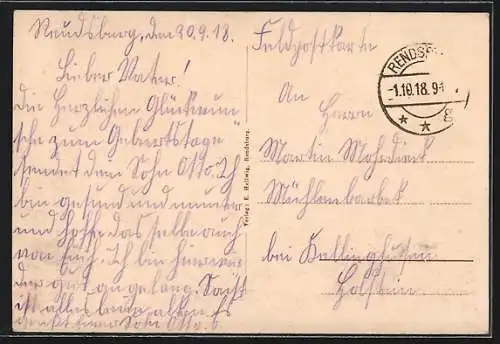 Rendsburg, den 30.9.18.
Lieber Vater!
Die herzlichen Glückwün
sche zum Geburtstage
sendet dein Sohn Otto. Ich
bin gesund und munter
und hoffe dasselbe auch
von Euch. Ich bin hier wie
der gut angelang. Sonst
ist alles beim alten. Es
Sohn Otto.
Verlag: E. Hellwig, Rendsburg.
Feldpostkarte
RENDSB
-1.10.18.9-
An
Herrn
Martin Mohrdieck
Mühlenbarbek
bei Kellinghusen
Holstein